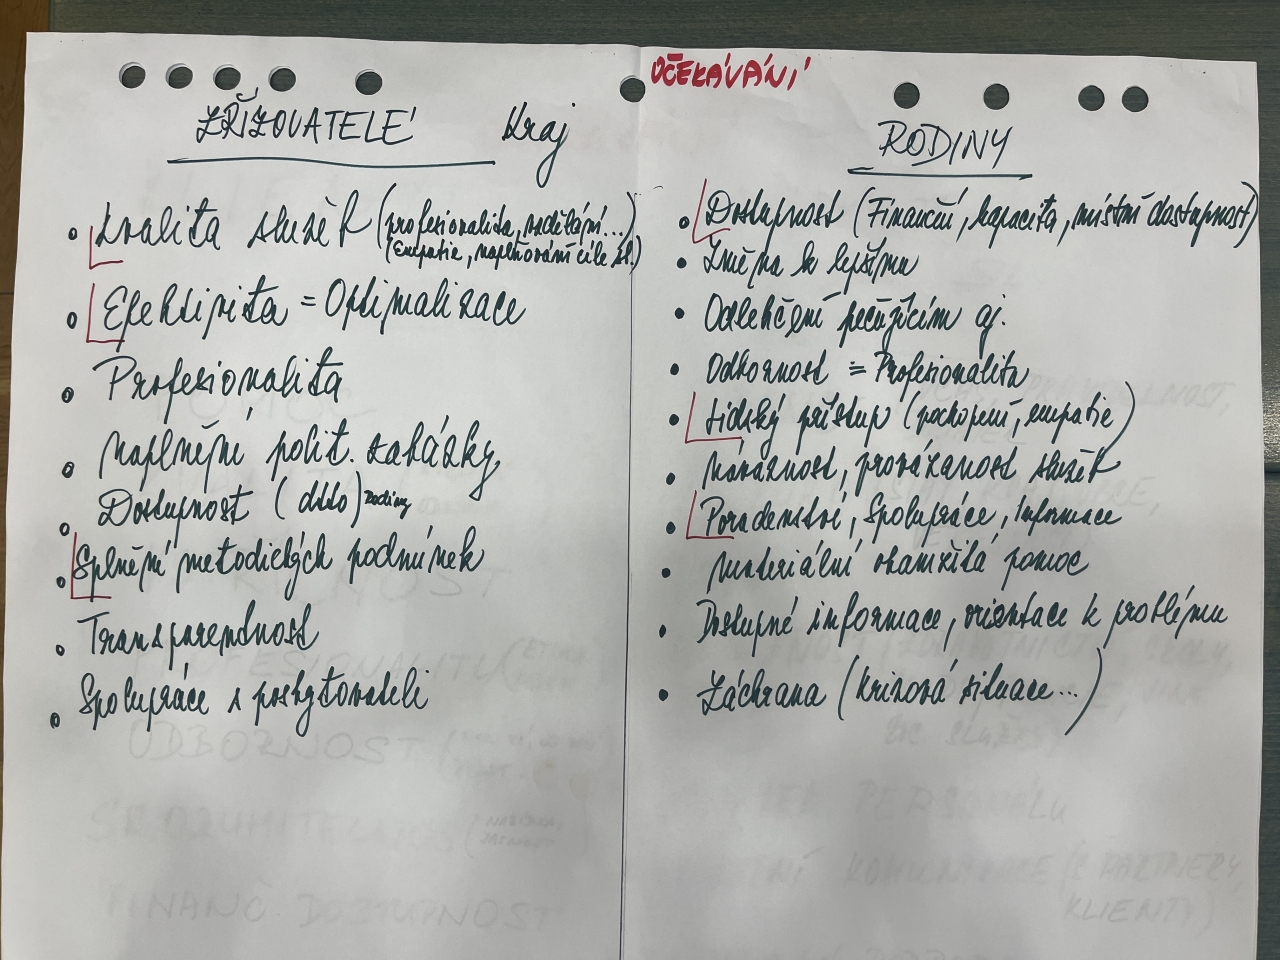 OČEKÁVÁNÍ
ZŘIZOVATELÉ Kraj
• Kvalita služeb (profesionalita, vzdělání...)
(Empatie, naplňování cíle sl.)
• Efektivita = Optimalizace
• Profesionalita
• Naplnění polit. zakázky
• Dostupnost (dtto) Rodiny
• Splnění metodických podmínek
• Transparentnost
• Spolupráce s poskytovateli
RODINY
• Dostupnost (Finanční, kapacita, místní dostupnost)
• Změna k lepšímu
• Odlehčení pečujícím aj.
• Odbornost = Profesionalita
• Lidský přístup (pochopení, empatie)
• Návaznost, provázanost služeb
• Poradenství, Spolupráce, Informace
• Materiální okamžitá pomoc
• Dostupné informace, orientace k problému
• Záchrana (krizová situace...)
FINANČ. DOSTUPNOST